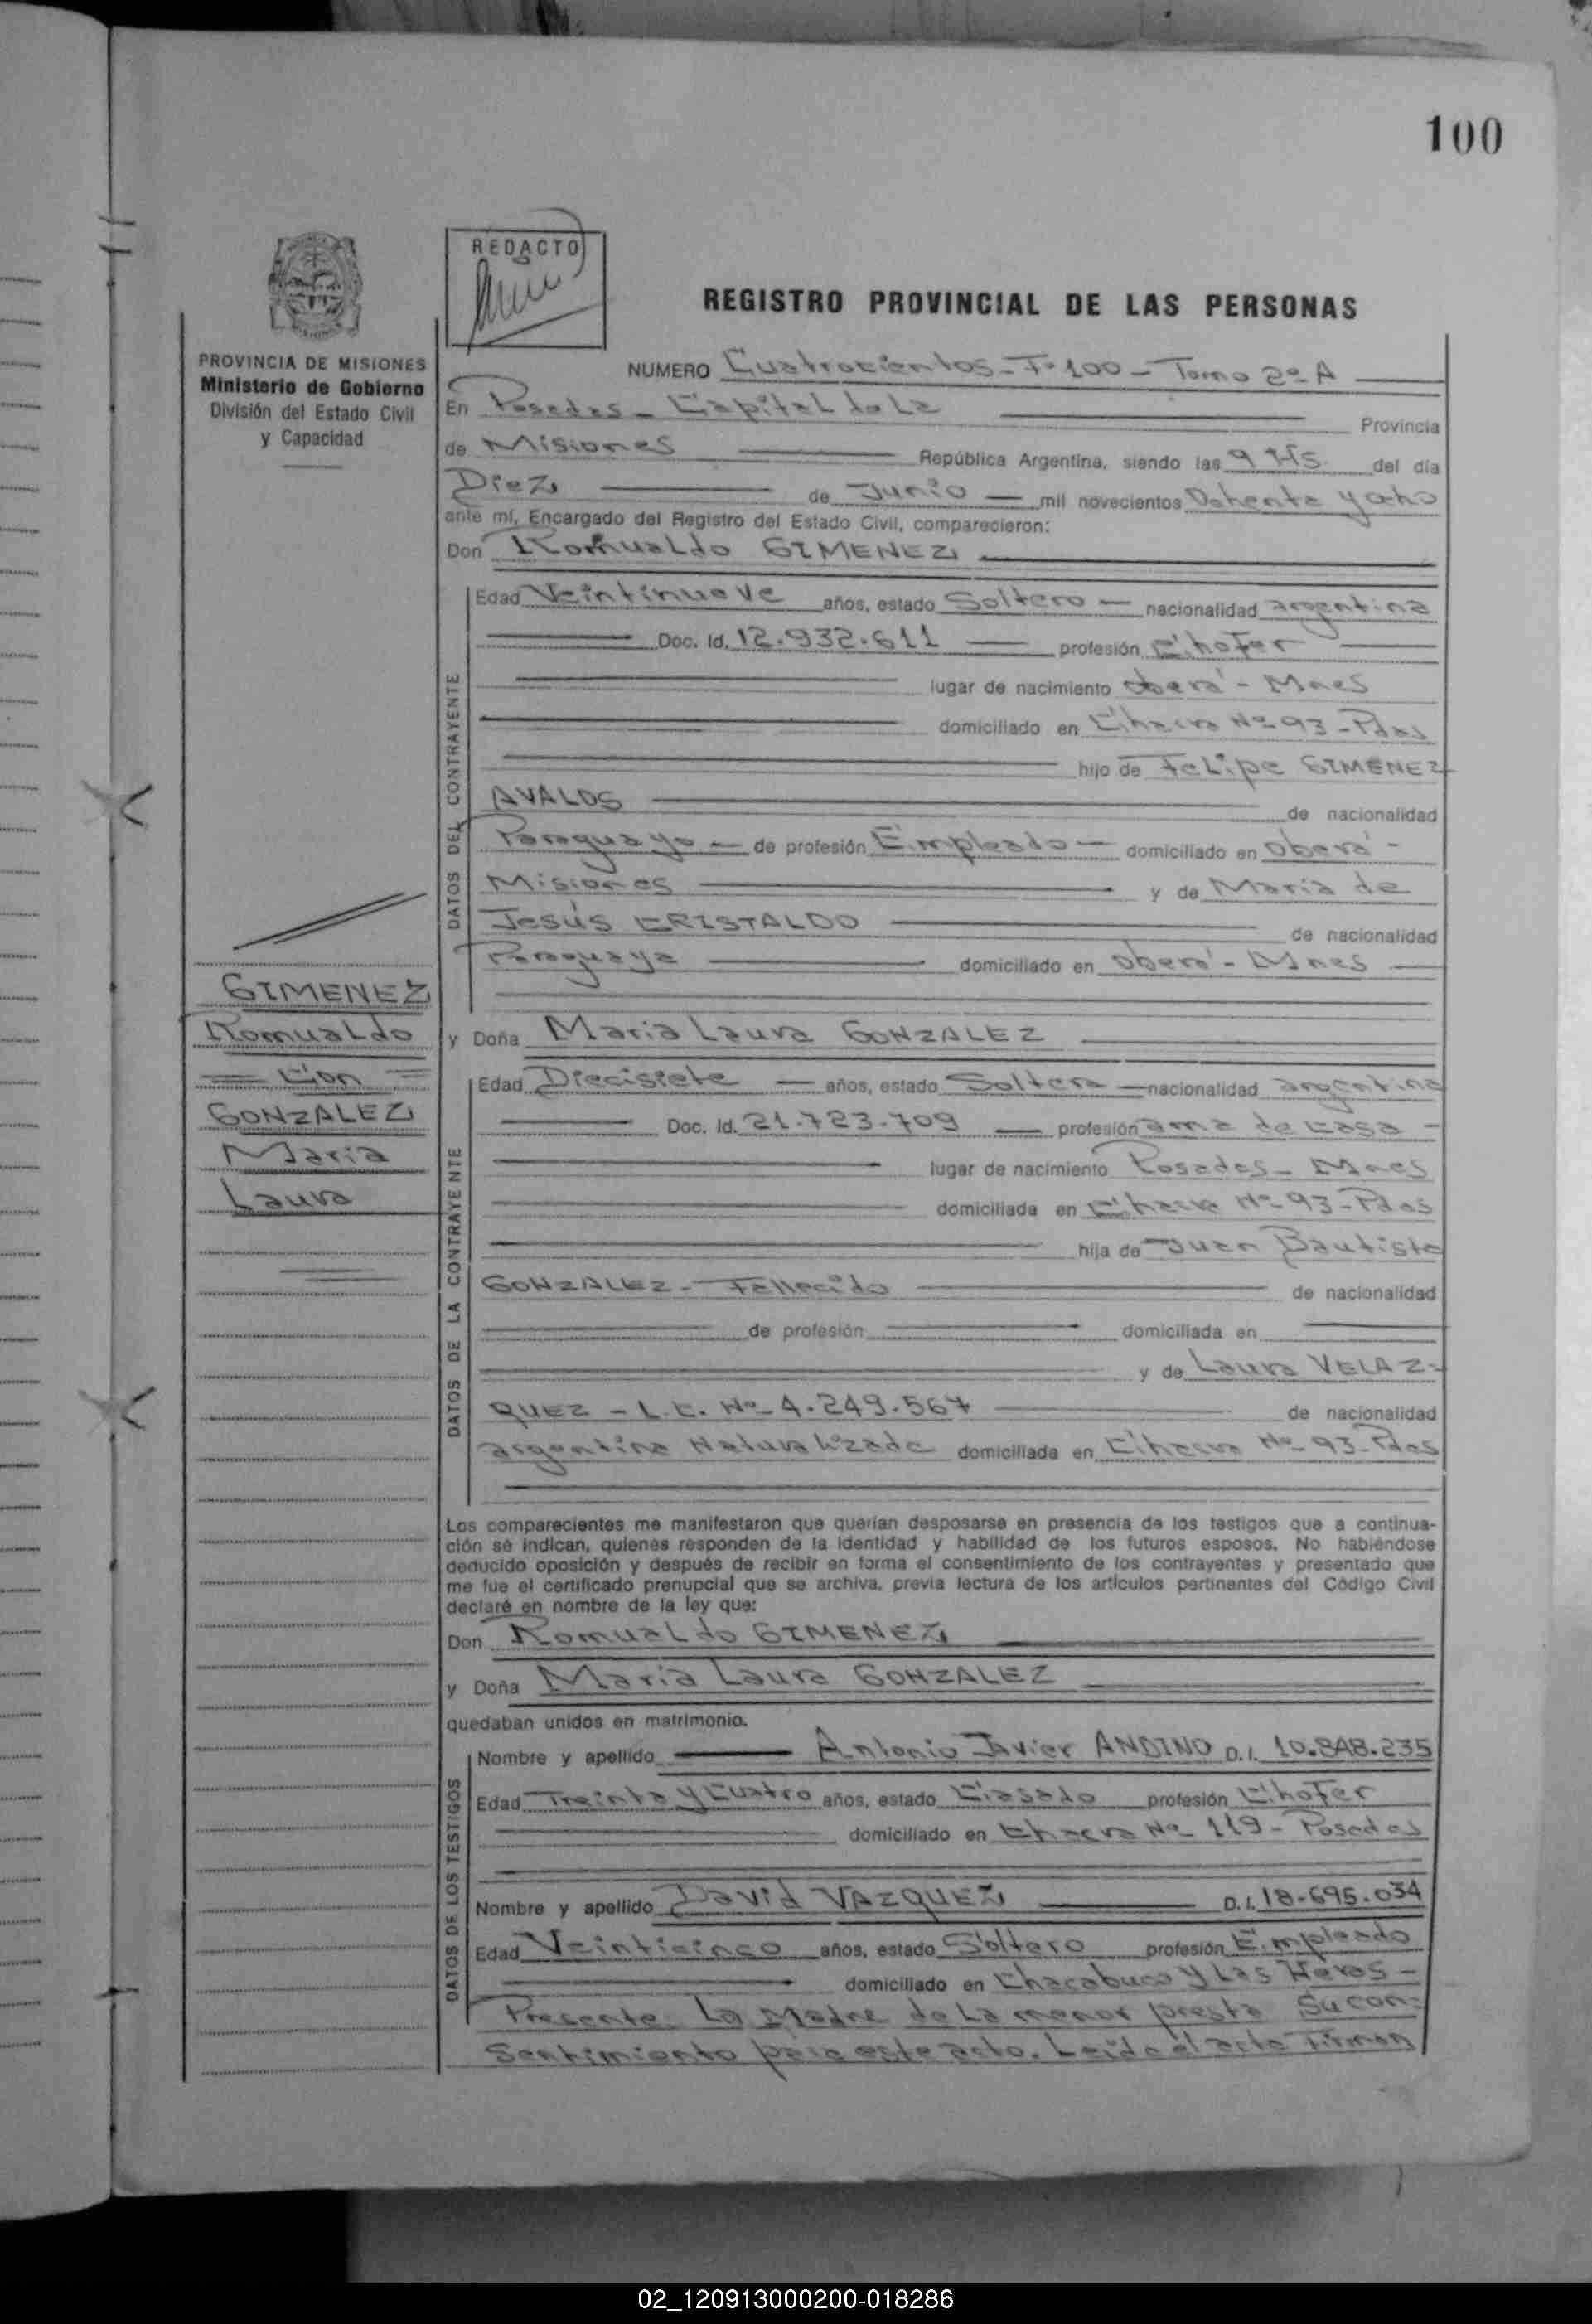 100
REDACTO
REGISTRO PROVINCIAL DE LAS PERSONAS
PROVINCIA DE MISIONES
Ministerio de Gobierno
División del Estado Civil
y Capacidad
NUMERO Cuatrocientos - Fº 100 - Tomo 2º A
En Posadas - Capital de La Provincia
de Misiones República Argentina, siendo las 9 Hs. del día
Diez de Junio mil novecientos Ochenta y ocho
ante mí, Encargado del Registro del Estado Civil, comparecieron:
Don Romualdo GIMENEZ
DATOS DEL CONTRAYENTE
Edad Veintinueve años, estado Soltero nacionalidad argentina
Doc. Id. 12.932.611 profesión Chofer
lugar de nacimiento Oberá - Mnes
domiciliado en Chacra Nº 93 - Pdas
hijo de Felipe GIMENEZ
AVALOS de nacionalidad
Paraguayo de profesión Empleado domiciliado en Oberá -
Misiones y de María de
Jesús CRISTALDO de nacionalidad
Paraguaya domiciliado en Oberá - Mnes
GIMENEZ
Romualdo
Con
GONZALEZ
Maria
Laura
y Doña Maria Laura GONZALEZ
DATOS DE LA CONTRAYENTE
Edad Diecisiete años, estado Soltera nacionalidad argentina
Doc. Id. 21.723.709 profesión ama de casa -
lugar de nacimiento Posadas - Mnes
domiciliada en Chacra Nº 93 - Pdas
hija de Juan Bautista
GONZALEZ - Fallecido de nacionalidad
de profesión domiciliada en
y de Laura VELAZ-
QUEZ - L.C. Nº 4.249.567 de nacionalidad
argentina Naturalizada domiciliada en Chacra Nº 93 - Pdas
Los comparecientes me manifestaron que querían desposarse en presencia de los testigos que a continua-
ción se indican, quienes responden de la identidad y habilidad de los futuros esposos. No habiéndose
deducido oposición y después de recibir en forma el consentimiento de los contrayentes y presentado que
me fue el certificado prenupcial que se archiva, previa lectura de los artículos pertinentes del Código Civil
declaré en nombre de la ley que:
Don Romualdo GIMENEZ
y Doña Maria Laura GONZALEZ
quedaban unidos en matrimonio.
DATOS DE LOS TESTIGOS
Nombre y apellido Antonio Javier ANDINO D.I. 10.848.235
Edad Treinta y Cuatro años, estado Casado profesión Chofer
domiciliado en Chacra Nº 119 - Posadas
Nombre y apellido David VAZQUEZ D.I. 18.695.034
Edad Veinticinco años, estado Soltero profesión Empleado
domiciliado en Chacabuco y Las Heras -
Presente La Madre de La menor presta Su con-
Sentimiento para este acto. Leída el acta Firman
02_120913000200-018286